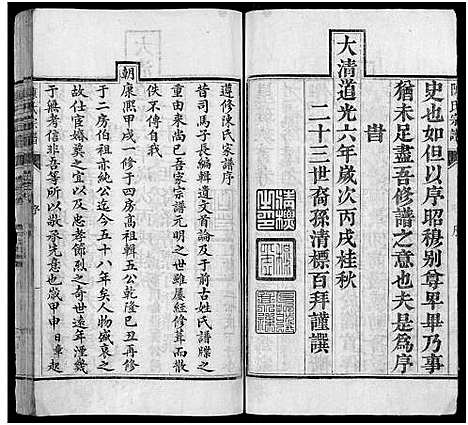 史也如但以序昭穆別尊卑畢乃事
猶未足盡吾修譜之意也夫是為序
旹
大清道光六年歲次丙戌桂秋
二十三世裔孫清標百拜謹譔
遵修陳氏家譜序
昔司馬子長編輯遺文首論及于前古姓氏譜牒之
重由來尚已吾家宗譜元明之世雖屢經修葺而散
佚不傳自我
朝
康熙甲戌一修于四房高祖輯五公乾隆己丑再修
于二房伯祖亦純公迄今五十八年矣人物盛衰之
故仕宦婚姻之宜以及忠孝節烈之奇使文獻無徵
于無者信非吾等所以敬承先意也歲甲申日章起
序